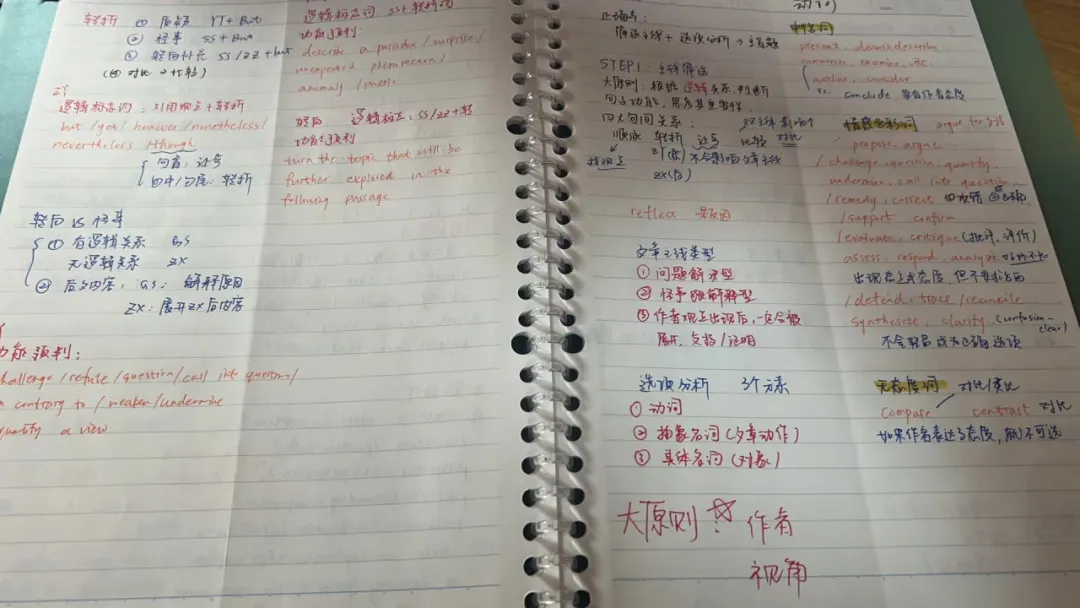 转折 ① 质疑 YT + But
② 怪事 SS + But
③ 转向补充 SS/ZZ + but
逻辑构造词: 引用观点 + 转折
but / yet / however / nonetheless /
nevertheless / though
句首, 让步
句中/句尾: 转折
转向 vs 怪事
① 有逻辑关系 GS
无逻辑关系 ZX
② 后文内容: GS: 解释原因
ZX: 展开ZX后内容
功能预判:
challenge / refute / question / call into question /
contrary to / weaken / undermine
qualify a view
逻辑构造词: SS + 转折词
功能预判:
describe a paradox / surprise /
unexpected phenomenon /
anomaly / puzzle
转后 逻辑构造: SS/ZZ + 转
功能预判
turn the topic that will be
further explored in the
following passage
正确率:
STEP1: 主线筛选
大原则: 根据逻辑关系, 判断
句子功能, 思考其重要性
四大句间关系:
顺承 转折 让步 比较 对比
不会影响文章主线
ZX(后)
reflect 果→因
文章主线类型
① 问题解决型
② 怪事现象解释型
③ 作者观点出现后, 一定会被
展开、支持/证明
选项分析 3个方案
① 动词
② 抽象名词 (文章动作)
③ 具体名词 (对象)
大原则! ☆ 作者
视角
动词
中性词
present, discuss, describe
summarize, examine, etc.
outline, consider
conclude 要有作者态度
态度色彩词 argue for
propose, argue
/ challenge, question, qualify
undermine, call into question
/ remedy, correct
/ support confirm
/ evaluate, critique (批评, 评价)
assess, respond, analyze
/ defend, trace / reconcile
synthesize, clarify (confusion→
clear)
不会轻易成为正确选项
无态度词 对比/类比
compare contrast 对比
如果作者表达了态度, 就不可选